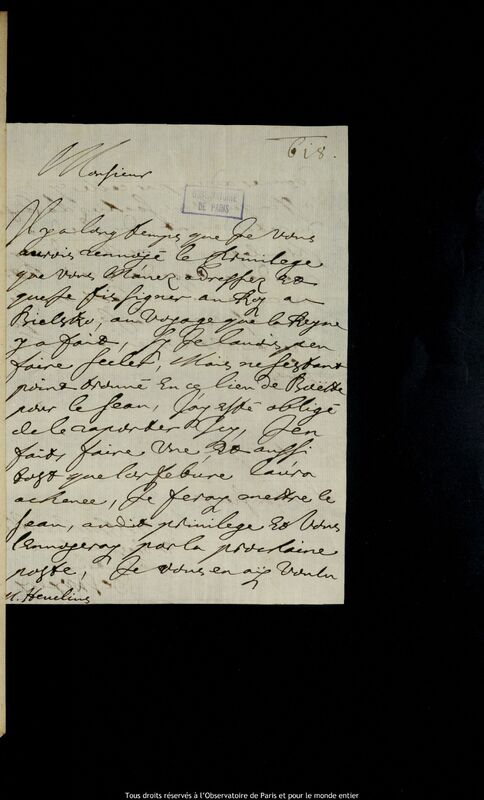 618.
Monsieur
OBSERVATOIRE
DE PARIS
Il y a long temps que Je vous
aurois renvoyé le Privilege
que vous m'avez adressez Et
que fis signer au Roy a
Bielsko, au voyage que la Reyne
y a fait, sy Je l'avois peu
faire seeler, Mais ne s'estant
point trouvé En ce lieu de Boette
pour le seau, J'ay esté obligé
de le raporter Icy, J'en
fais faire Une, Et aussi
tost que l'orfebure l'aura
achevée, Je feray mettre le
seau, audit privilege Et Vous
l'envoyeray par la prochaine
poste, Je vous en ay Voulu
M. Hevelius
Tous droits réservés à l'Observatoire de Paris et pour le monde entier